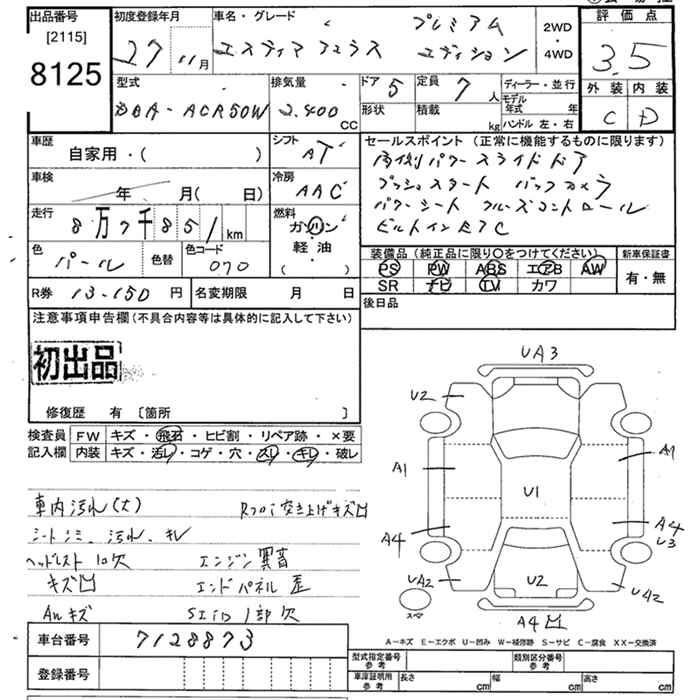 出品番号
[2115]
8125
初度登録年月
27
11月
車名・グレード
エスティマ アエラス
プレミアム
エディション
2WD
・
4WD
評価点
3.5
外装 内装
C D
型式
DBA-ACR50W
排気量
2.400
CC
ドア 5
形状
定員 7人
積載 kg
ディーラー・並行
モデル年式 年
ハンドル 左・右
車歴
自家用・( )
シフト
AT
車検
年 月( 日)
冷房
AAC
走行
8万7千851km
燃料
ガソリン
軽・油
( )
色
パール
色替
色コード
070
R券 13-150円
名変期限 月 日
セールスポイント (正常に機能するものに限ります)
両側パワースライドドア
プッシュスタート バックカメラ
パワーシート クルーズコントロール
ビルトインETC
装備品 (純正品に限り〇をつけてください)
PS PW ABS エアB AW
SR ナビ TV カワ
新車保証書
有・無
後日品
注意事項申告欄 (不具合内容等は具体的に記入して下さい)
初出品
修復歴 有 [箇所 ]
検査員
記入欄
FW キズ・飛石・ヒビ割・リペア跡・×要
内装 キズ・汚レ・コゲ・穴・スレ・キレ・破レ
車内汚れ(大)
Rフロア突き上げキズ凹
シートシミ、汚れ、キレ
ヘッドレスト1ヶ欠
エンジン異音
キズ凹
エンドパネル歪
AWキズ
1部欠
UA3
U2
A1
A1
U1
A4
A4
U3
UA2
U2
UA2
スペア
A4凹
A-キズ E-エクボ U-凹み W-補修跡 S-サビ C-腐食 XX-交換済
車台番号
7128873
登録番号
型式指定番号
参考
類別区分番号
参考
車庫証明用
参考
長さ cm
幅 cm
高さ cm